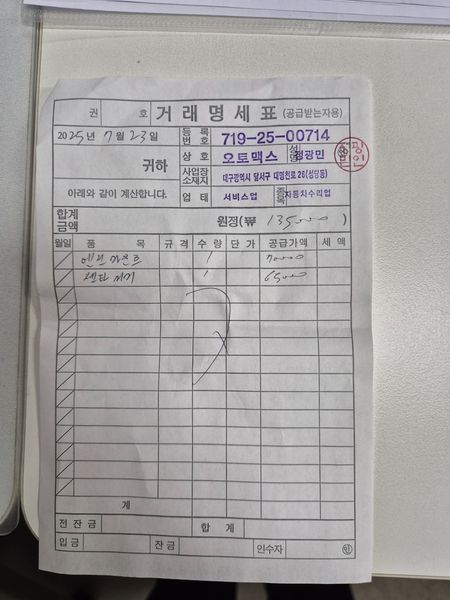 권 호 거 래 명 세 표 (공급받는자용)
2025년 7월 23일
등록번호 719-25-00714
귀하
상호 오토맥스 성명 정광민
사업장소재지 대구광역시 달서구 대명천로 26(성당동)
아래와 같이 계산합니다.
업태 서비스업 종목 자동차수리업
합계금액 원정(₩ 135000 )
월일 품 목 규격 수량 단가 공급가액 세액
엔진 마운트 1 70000
1 65000
계
전잔금 합계
입금 잔금 인수자 ㊞